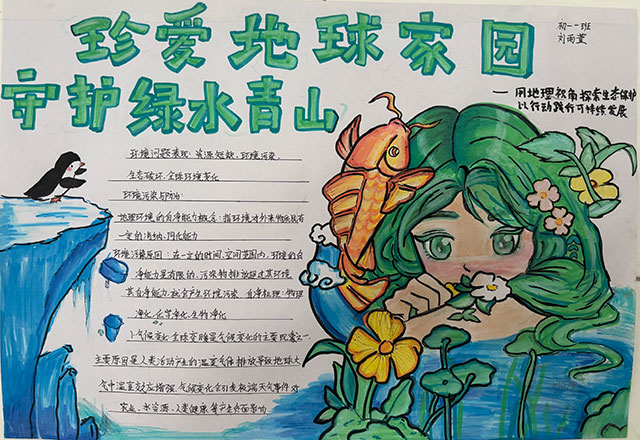 珍爱地球家园
守护绿水青山
初一一班
刘雨萱
——用地理视角探索生态保护
以行动践行可持续发展
环境问题表现:资源短缺,环境污染,
生态破坏,全球环境变化
环境污染与防治:
地理环境的自净能力概念:指环境对外来物质具有
一定的消纳、同化能力
环境污染原因:在一定的时间、空间范围内,环境的自
净能力是有限的,污染物排放超过其环境
其自净能力,就会产生环境污染 自净机理:物理
净化,化学净化,生物净化
气候变化:全球变暖是气候变化的主要现象之一
主要原因是人类活动产生的温室气体排放导致地球大
气中温室效应增强,气候变化会引发极端天气事件对
农业、水资源、人类健康等产生负面影响